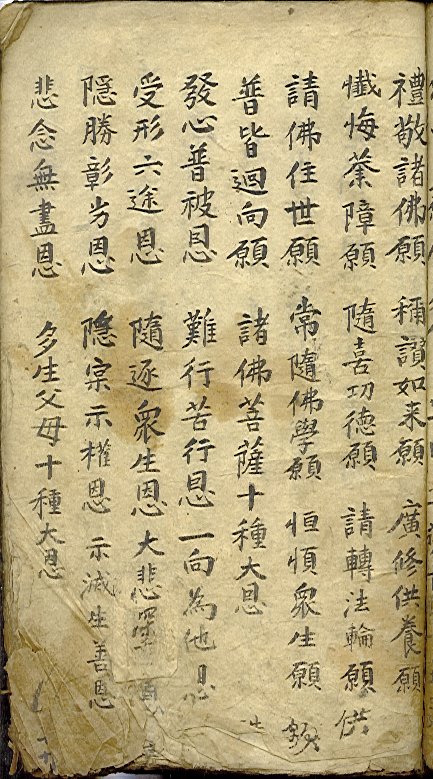 禮敬諸佛願 稱讃如来願 廣修供養願
懺悔業障願 隨喜功德願 請轉法輪願 供
請佛住世願 常隨佛學願 恒順衆生願
普皆迴向願 諸佛菩薩十種大恩
發心普被恩 難行苦行恩 一向為他恩
受形六途恩 隨逐衆生恩 大悲深重恩
隱勝彰劣恩 隱宗示權恩 示滅生善恩
悲念無盡恩 多生父母十種大恩